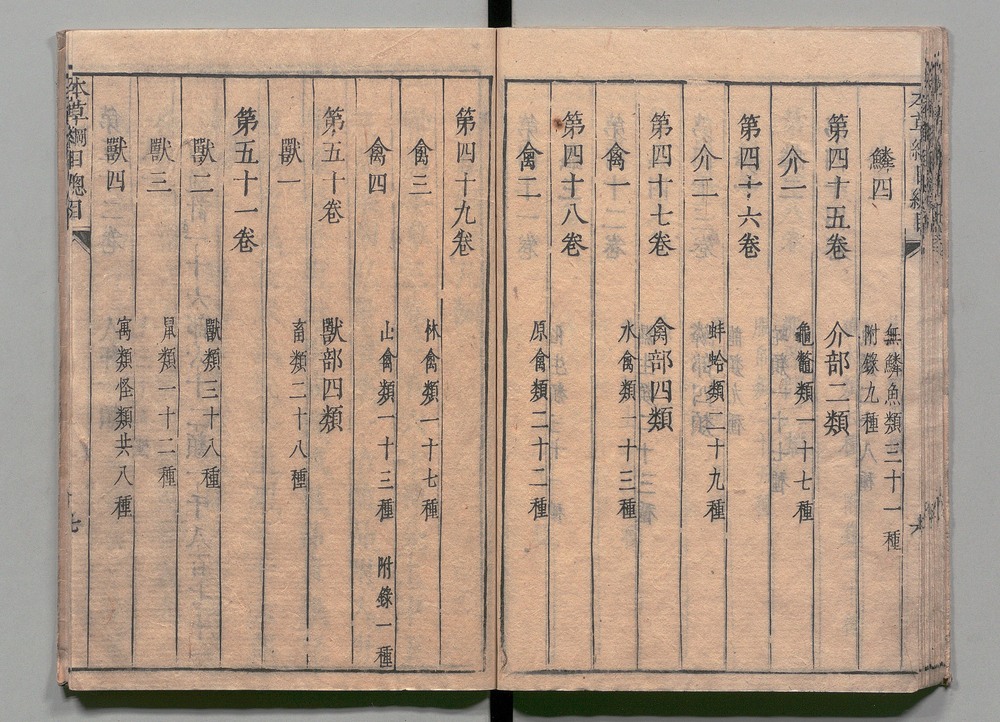 鱗四 無鱗魚類三十一種
附錄九種
第四十五卷 介部二類
介一 龜鼈類一十七種
第四十六卷
介二 蚌蛤類二十九種
第四十七卷 禽部四類
禽一 水禽類二十三種
第四十八卷
禽二 原禽類二十二種
第四十九卷
禽三 林禽類一十七種
禽四 山禽類一十三種 附錄一種
第五十卷 獸部四類
獸一 畜類二十八種
第五十一卷
獸二 獸類三十八種
獸三 鼠類一十二種
獸四 寓類怪類共八種
本草綱目總目
七